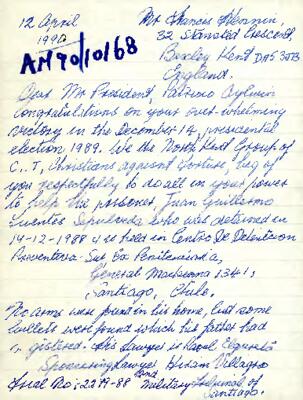 12 April
1990
AM 90/10/68
Mr Francis Hannin,
32 Stansted Crescent
Bexley Kent DA5 3JB
England.
Dear Mr President, Patricio Aylwin
Congratulations on your over-whelming
victory in the December 14, presidential
election 1989. We the North Kent Group of
C..T, Christians against torture, beg of
you respectfully to do all in your power
to help the prisoner, Juan Guillermo
Fuentes Sepulveda who was detained in
14-12-1988 & is held in Centro De Detencion
Preventiva - Sur Ex Penitenciaria,
General Mackenna 1341,
Santiago, Chile.
No arms were found in his home, but some
bullets were found which his father had
registered. His lawyer is Raoul
Sponsoring lawyer Hiram Villagra
Trial No: 2279-88 2nd Military Tribunal of
Santiago.